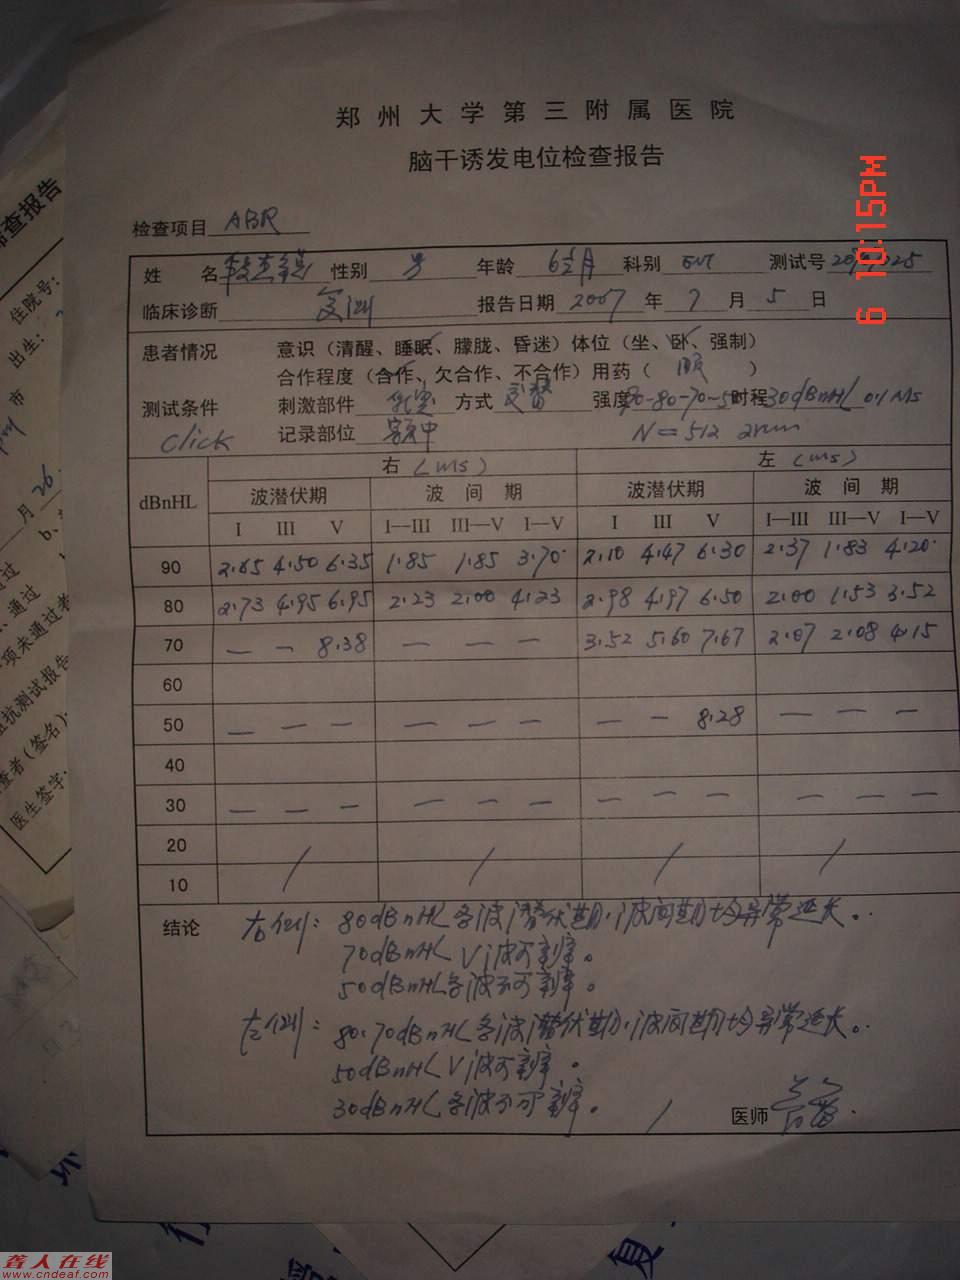 郑州大学第三附属医院
脑干诱发电位检查报告
检查项目 ABR
姓 名 性别 男 年龄 6个月 科别 ENT 测试号
临床诊断 报告日期 2007 年 7 月 5 日
患者情况 意识（清醒、睡眠、朦胧、昏迷）体位（坐、卧、强制）
合作程度（合作、欠合作、不合作）用药（ ）
测试条件 刺激部件 乳突 方式 强度 90-80-70-50 时程 30dBnHL 0.1 Ms
Click 记录部位 额中 N=512
右 (ms) 左 (ms)
dBnHL 波潜伏期 波 间 期 波潜伏期 波 间 期
I III V I—III III—V I—V I III V I—III III—V I—V
90 2.65 4.50 6.35 1.85 1.85 3.70 2.10 4.47 6.30 2.37 1.83 4.20
80 2.73 4.95 6.95 2.23 2.00 4.23 2.98 4.97 6.50 2.00 1.53 3.52
70 — — 8.38 — — — 3.52 5.60 7.67 2.07 2.08 4.15
60
50 — — — — — — — — 8.28 — — —
40
30 — — — — — — — — — — — —
20 / / / /
10
结论 右侧：80dBnHL各波潜伏期、波间期均异常延长。
70dBnHL V波可辨。
50dBnHL各波不可辨。
左侧：80.70dBnHL各波潜伏期、波间期均异常延长。
50dBnHL V波可辨。
30dBnHL各波不可辨。
医师
6 10:15PM
查报告
住院号：
出生：
市
月 26
通过
通过
项未通过者
抗测试报告
查者（签名）：
医生签字：
复
聋人在线
www.cndeaf.com